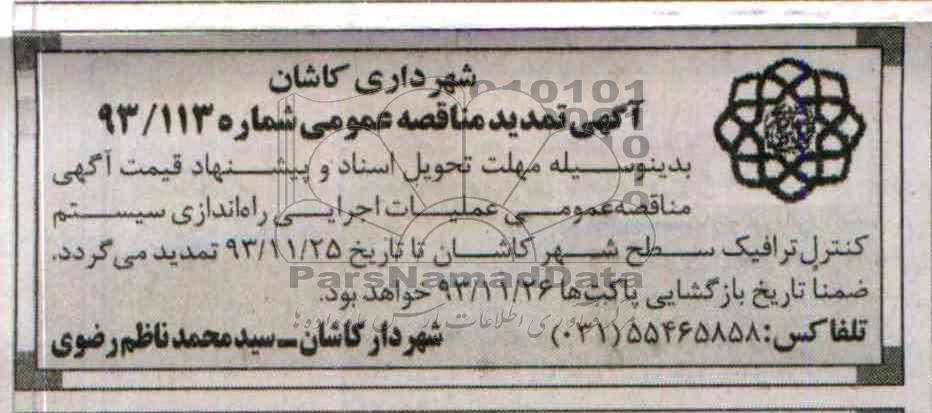 شهرداری کاشان
آگهی تمدید مناقصه عمومی شماره ۹۳/۱۱۳
بدینوسیله مهلت تحویل اسناد و پیشنهاد قیمت آگهی
مناقصه‌عمومی عملیات اجرایی راه‌اندازی سیستم
کنترل ترافیک سطح شهر کاشان تا تاریخ ۹۳/۱۱/۲۵ تمدید می‌گردد.
ضمنا تاریخ بازگشایی پاکت‌ها ۹۳/۱۱/۲۶ خواهد بود.
تلفاکس: ۵۵۴۶۵۸۵۸ (۰۳۱)
شهردار کاشان ــ سیدمحمد ناظم رضوی
ParsNamadData